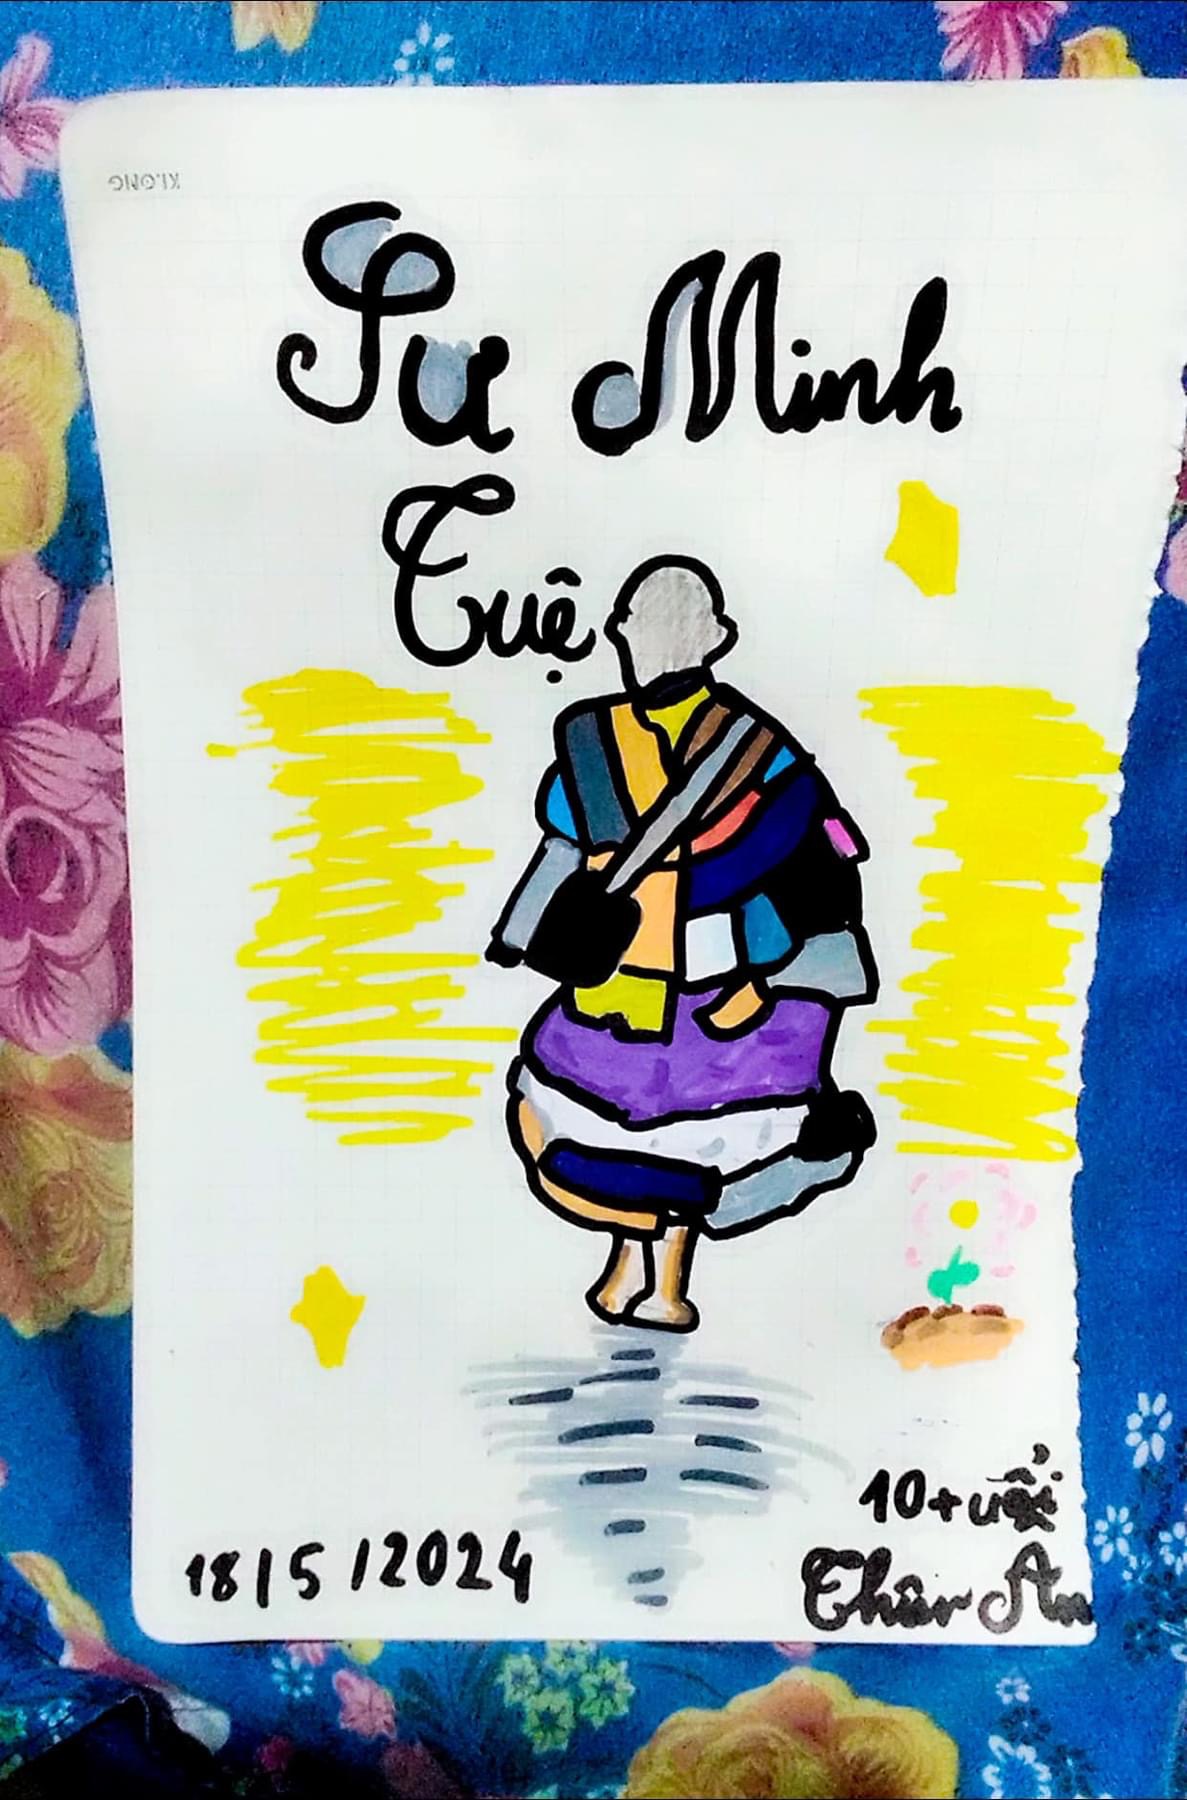 KLONG
Sư Minh
Tuệ
10 tuổi
18/5/2024
Thân An